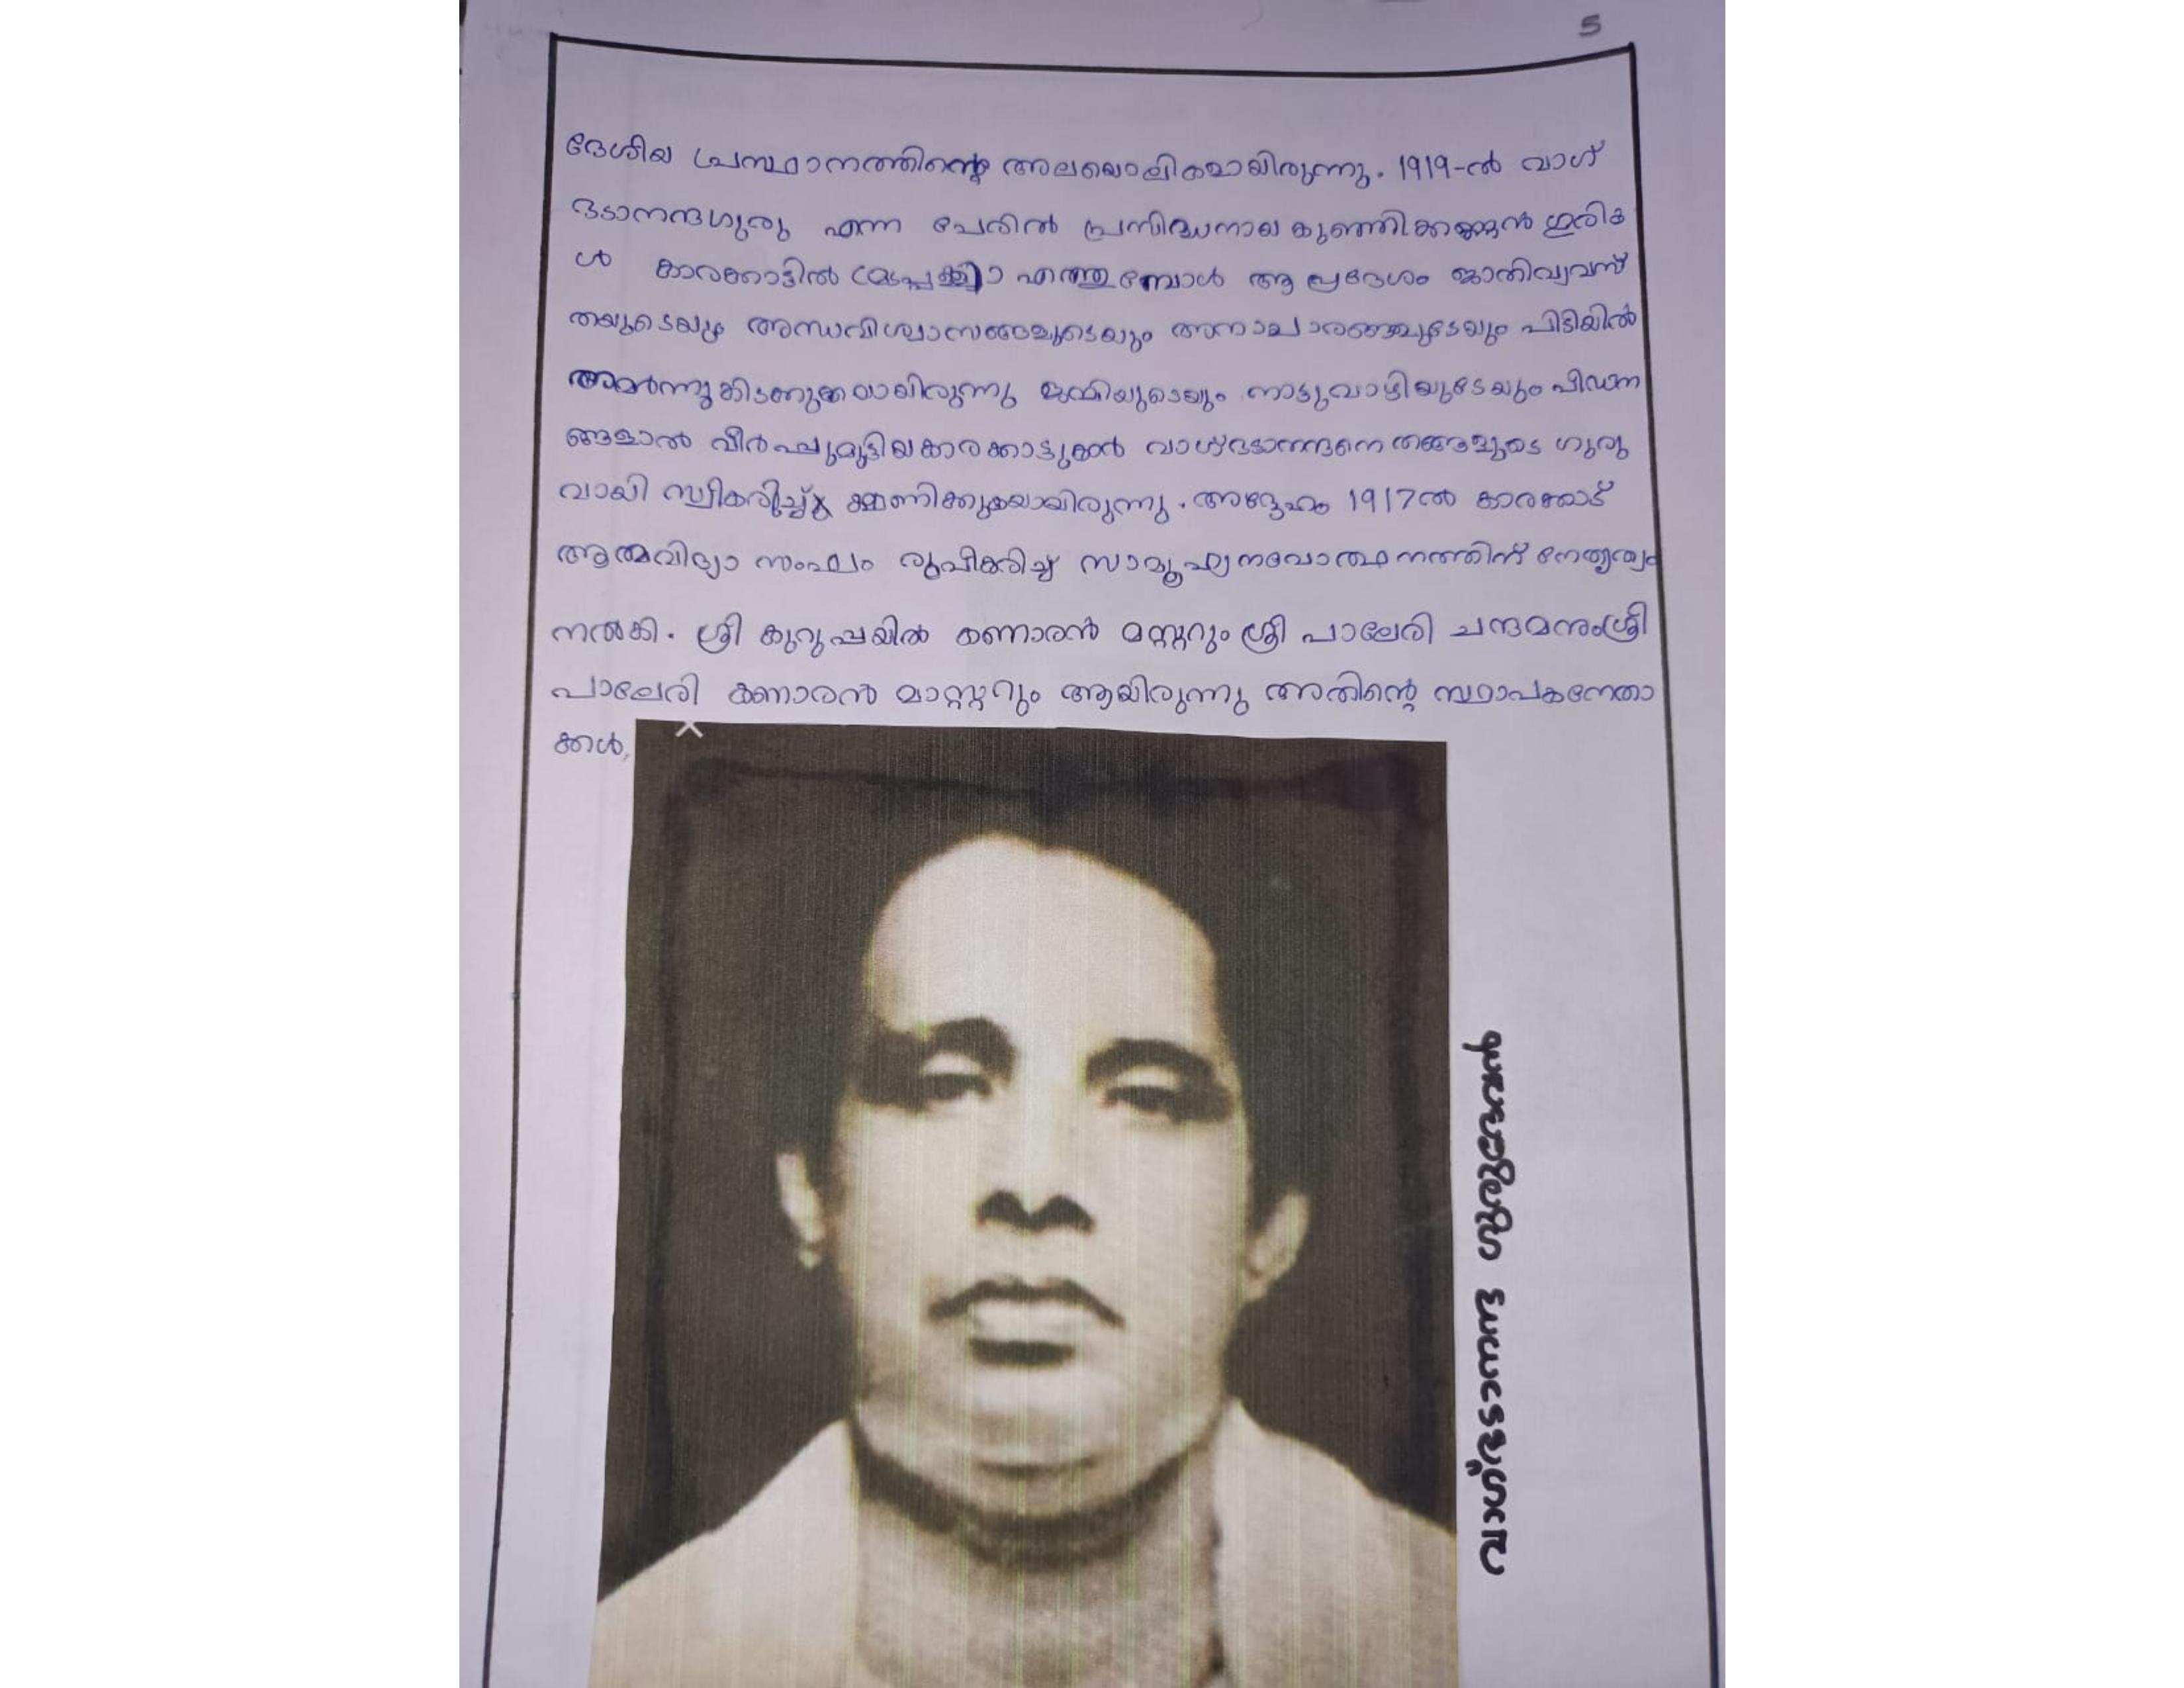 5
ദേശീയ പ്രസ്ഥാനത്തിന്റെ അലയൊലികളായിരുന്നു. 1919-ൽ വാഗ്
ഭടാനന്ദഗുരു എന്ന പേരിൽ പ്രസിദ്ധനായ കുഞ്ഞിക്കണ്ണൻ ഗുരിക
ൾ കാരക്കാട്ടിൽ എത്തുമ്പോൾ ആ പ്രദേശം ജാതിവ്യവസ്
തയുടെയും അന്ധവിശ്വാസങ്ങളുടെയും അനാചാരങ്ങളുടേയും പിടിയിൽ
അമർന്നുകിടക്കുകയായിരുന്നു ജന്മിയുടെയും നാട്ടുവാഴിയുടേയും പീഡന
ങ്ങളാൽ വീർപ്പുമുട്ടിയ കാരക്കാട്ടുകാർ വാഗ്ഭടാനന്ദനെ തങ്ങളുടെ ഗുരു
വായി സ്വീകരിച്ച് ക്ഷണിക്കുകയായിരുന്നു. അദ്ദേഹം 1917ൽ കാരക്കാട്
ആത്മവിദ്യാ സംഘം രൂപീകരിച്ച് സാമൂഹ്യനവോത്ഥനത്തിന് നേതൃത്വം
നൽകി. ശ്രീ കുറുപ്പയിൽ കണാരൻ മസ്റ്ററും ശ്രീ പാലേരി ചന്ദമനുംശ്രീ
പാലേരി കണാരൻ മാസ്റ്ററും ആയിരുന്നു അതിന്റെ സ്ഥാപകനേതാ
ക്കൾ,
വാഗ്ഭടാനന്ദ